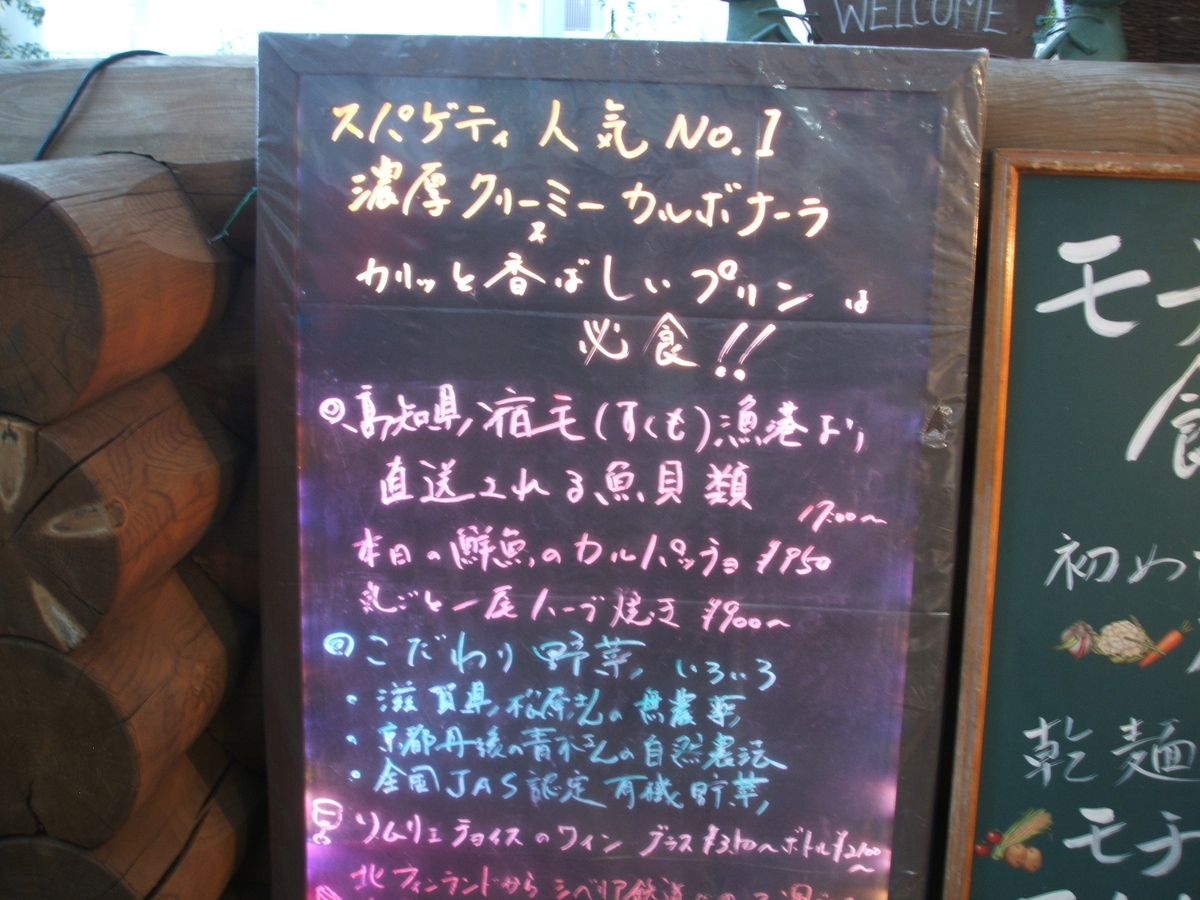 WELCOME
スパゲティ 人気 No.1
濃厚クリーミーカルボナーラ
カリッと香ばしいプリン は
必食!!
◎高知県 宿毛(すくも)漁港より
直送される魚貝類
17:00〜
本日の鮮魚のカルパッチョ ¥950
丸ごと一尾ハーブ焼き ¥900〜
◎こだわり野菜 いろいろ
・滋賀県 松原さんの無農薬
・京都丹後の青木さんの自然農法
・全国JAS認定有機野菜
ソムリエチョイスのワイン グラス ボトル¥2100〜
北フィンランドから シベリア鉄道
モチ
食
初め
乾麺
モチ